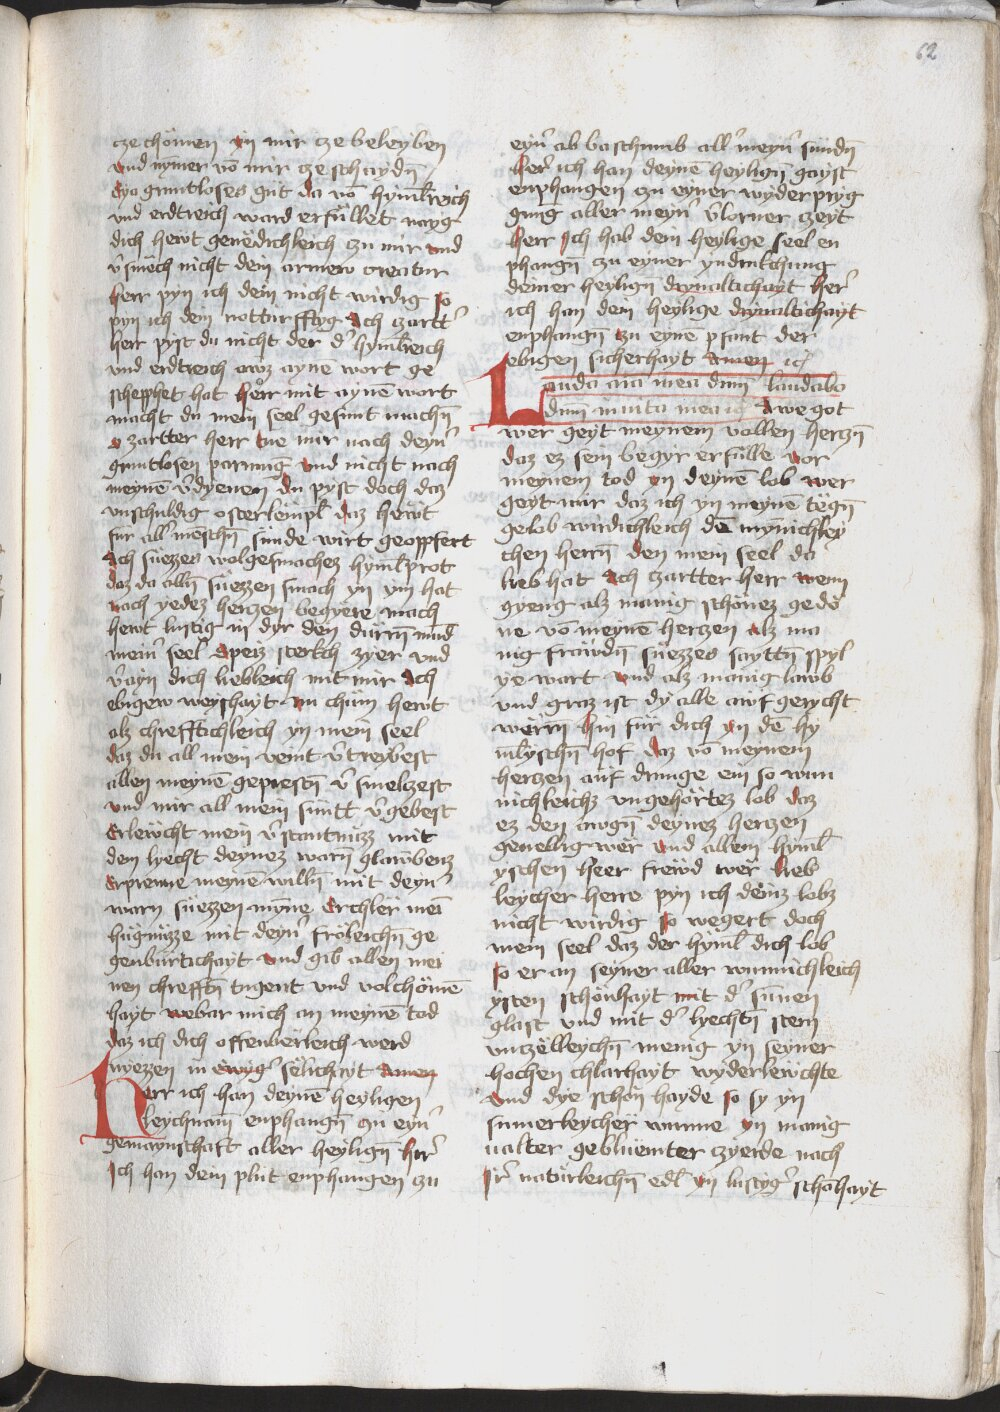 62
cze chömen yn mir cze beleyben
vnd nymer vō mir cze schaydn̄
Eya gruntloses gut da vō hymelreich
vnd erdtreich ward erfüllet nayg
dich hewt genëdichleich czu mir vnd
v̄smëch nicht dein armew creatur
herr pyn ich dein nicht wirdig so
pyn ich dein notturfftyg Ach czartt͛
herr pyst du nicht der d͛ hymelreich
vnd erdtreich awz aynē wort ge
schepphet hat herr mit aynē wort
macht du mein seel gesunt machn̄
o zartter herr tue mir nach deyn͛
gruntlosen parmūg vnd nicht nach
meynē v̄dyenen du pyst doch daz
vnschuldig osterlempl daz hewt
für all͛ menschn̄ sunde wirt geoppfert
Ach süezzes wolgesmachez hymelprot
daz da alln̄ süezzen smach yn ym hat
nach yedez herczen begyre mach
hewt lustig in dyr den dürrn̄ mūd
mein͛ seel Speis sterkch zyer vnd
v̄ayn dich liebleich mit mir Ach
ebigew weyshayt nu chüm hewt
alz chrefftichleich yn mein seel
daz du all mein veint v̄treybest
allen meynē geprestn̄ v̄smelczest
vnd mir all mein sünt v̄gebest
Erlewcht mein v̄stantnüzz mit
dem lyecht deynez warn̄ glawbenz
Erprenne meynē willn̄ mit deyn͛
warn süezzen mynne Erchler mei
hügnüzze mit deyn͛ frölichn̄ ge
genbürtichayt vnd gib allen mei
nen chrefftn̄ tugent vnd volchömē
hayt webar mich an meynē tod
daz ich dich offenberleich werd
nyezzen in ewyg͛ sëlichayt Amen
Herr ich han deynē heyligen
leychnam enphangn̄ czu eyn͛
gemaynschaft aller heylign̄ herr
Ich han dein plut enphangen zu
eyn͛ ab baschunb all͛ meyn͛ sündn̄
herr ich han deynē heylign̄ gayst
enphangen zu eyner wyderpryg
gung aller meyn͛ v̄lorner czeyt
herr Ich hab dein heylige seel en
phangn̄ zu eyner yndrukchung
deiner heylign̄ dryualtichayt her͛
ich han dein heylige dryualtichayt
enphangn̄ zu eynē pfant der
ebigen sicherhayt Amen
Lauda aīa mea dnm̄ laudabo
dnm̄ in uita mea Awe got
wer geyt meynem vollen herczn̄
daz ez sein begyr erfülle vor
meynem tod yn deynē lob wer
geyt mir daz ich yn meynē tëgn̄
gelob wirdichleich dē mynichley
chen herrn̄ den mein seel da
lieb hat Ach zartter herr wenn
gyeng alz manig schönez gedö
ne vō meynē herczen alz ma
nig frawdn̄ süezzes sayttn̄ spyl
ye wart vnd alz manig lawb
vnd graz ist dy alle awf gerycht
wërrn̄ hin für dich yn dē hy
mlyschn̄ hof daz vō meynem
herczen auf drunge ein so wun
nichleichz vngehörtez lob daz
ez den awgn̄ deynez herczen
geuellig wer vnd allem hyml
yschen heer frewd wer lieb
leycher herre pyn ich deinz lobz
nicht wirdig so wegert doch
mein seel daz der hyml dich lob
so er an seyner aller wunnichleich
ysten schönhayt mit d͛ sunnen
glast vnd mit d͛ lyechtn̄ stern
vnczëlleychn̄ menig yn seyner
hochen chlarhayt wyderlewchte
vnd dye schön hayde so sy yn
sumerleycher wunne yn manig
ualter geblüemter czyerde nach
Ir͛ natürleichn̄ edl yn lustyg͛ schönhayt